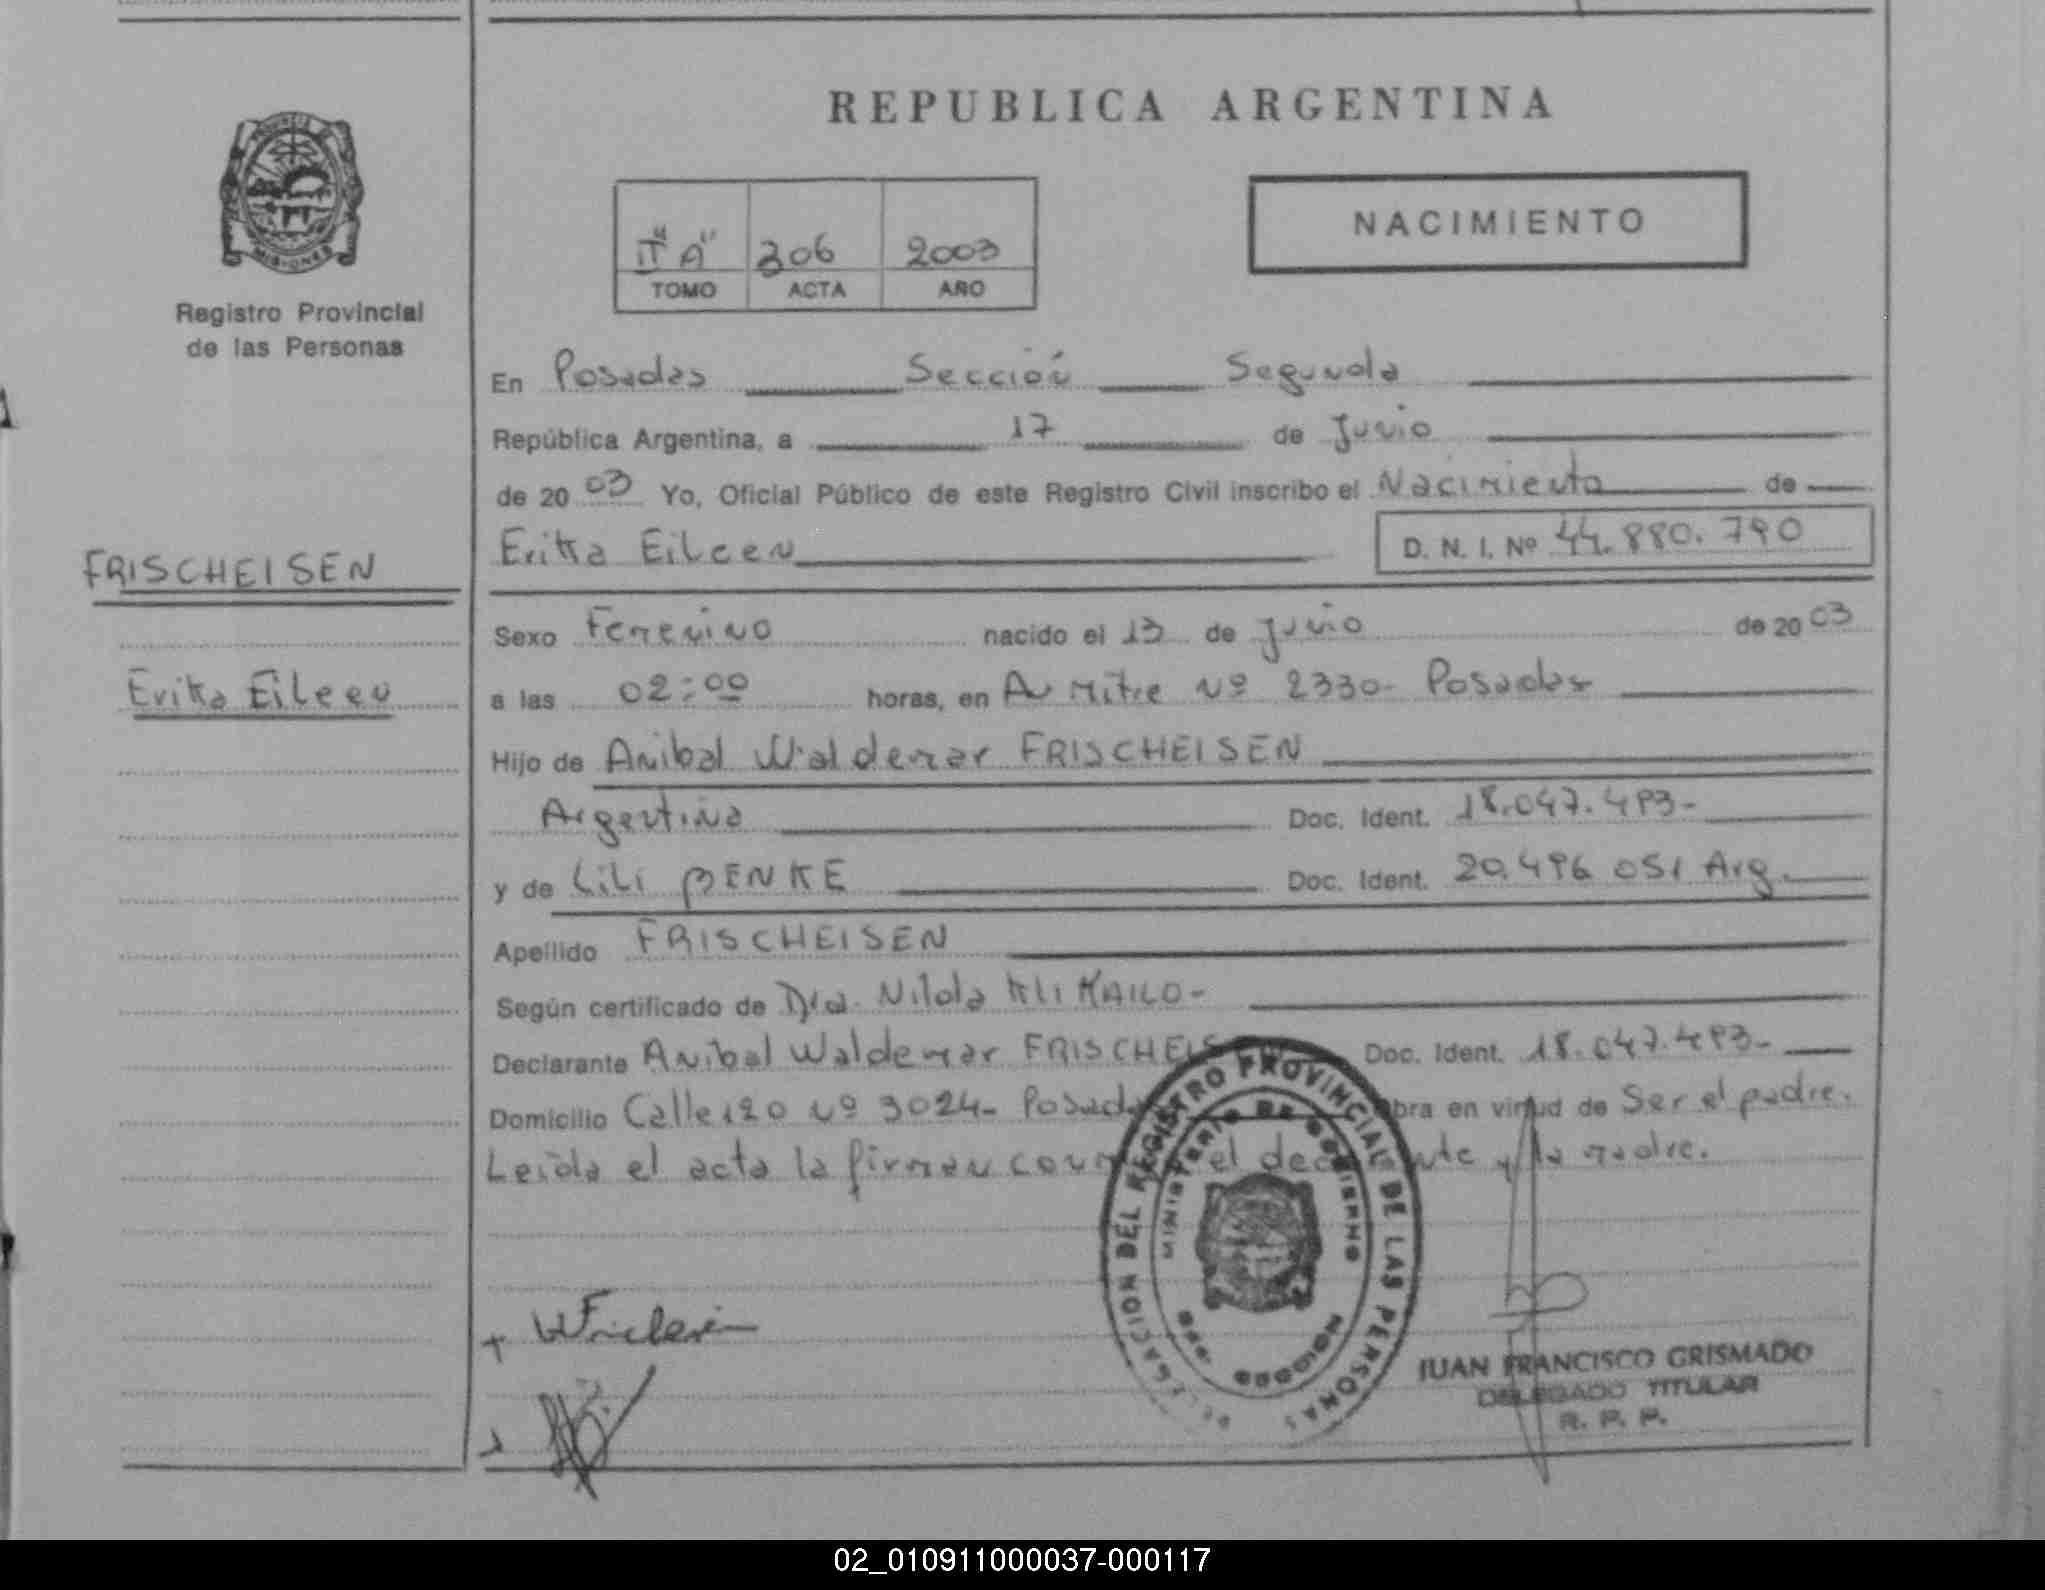 REPUBLICA ARGENTINA
PROVINCIA DE
MISIONES
Registro Provincial
de las Personas
II "A" 306 2003
TOMO ACTA AÑO
NACIMIENTO
En Posadas Sección Segunda
República Argentina, a 17 de Junio
de 2003 Yo, Oficial Público de este Registro Civil inscribo el Nacimiento de
Erika Eileen D. N. I. Nº 44.880.790
FRISCHEISEN
Erika Eileen
Sexo Femenino nacido el 13 de Junio de 2003
a las 02:00 horas, en Av Mitre Nº 2330- Posadas
Hijo de Anibal Waldemar FRISCHEISEN
Argentina Doc. Ident. 18.047.493-
y de Lili BENKE Doc. Ident. 20.496 051 Arg.
Apellido FRISCHEISEN
Según certificado de Dra. Nilda
Declarante Anibal Waldemar FRISCHEISEN Doc. Ident. 18.047.493-
Domicilio Calle 120 Nº 3024- Posadas Obra en virtud de Ser el padre.
Leida el acta la firman el declarante y la madre.
DELEGACION DEL REGISTRO PROVINCIAL DE LAS PERSONAS
MINISTERIO DE GOBIERNO
JUAN FRANCISCO GRISMADO
DELEGADO TITULAR
R. P. P.
02_010911000037-000117